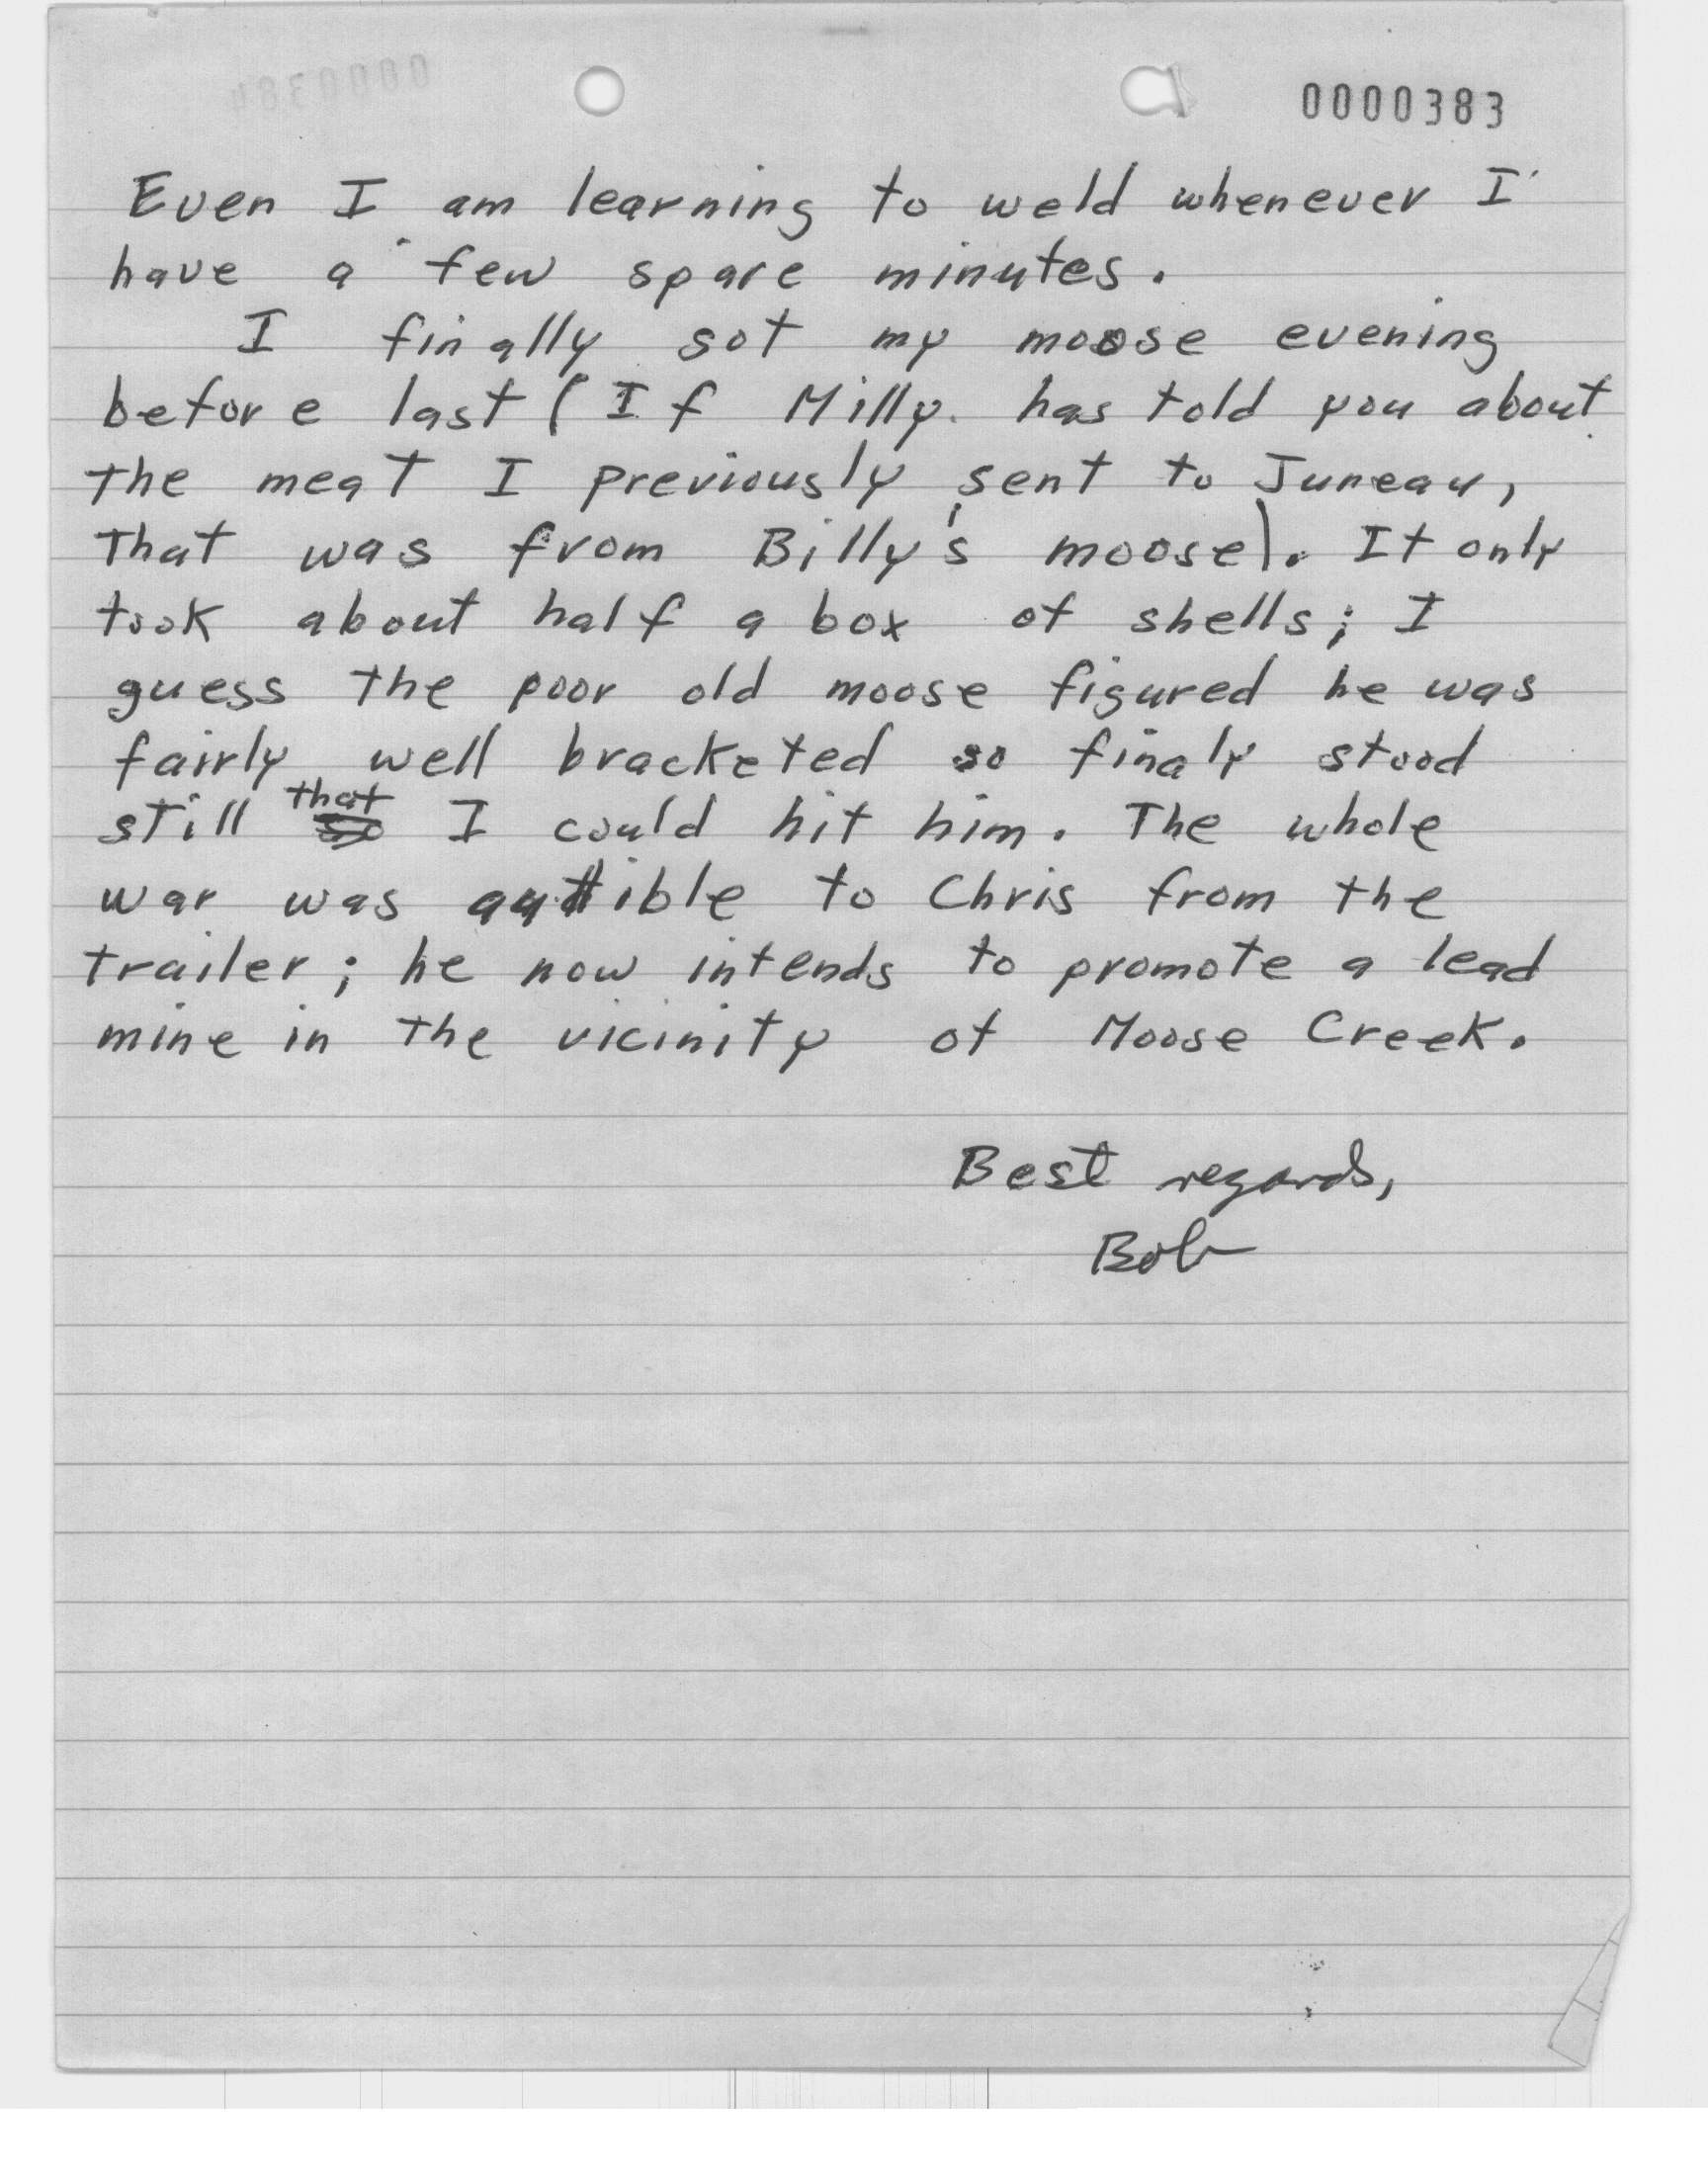 0000384
0000383
Even I am learning to weld whenever I
have a few spare minutes.
I finally got my moose evening
before last (If Milly has told you about
the meat I previously sent to Juneau,
that was from Billy's moose). It only
took about half a box of shells; I
guess the poor old moose figured he was
fairly well bracketed so finaly stood
still that I could hit him. The whole
war was audible to Chris from the
trailer; he now intends to promote a lead
mine in the vicinity of Moose Creek.
Best regards,
Bob